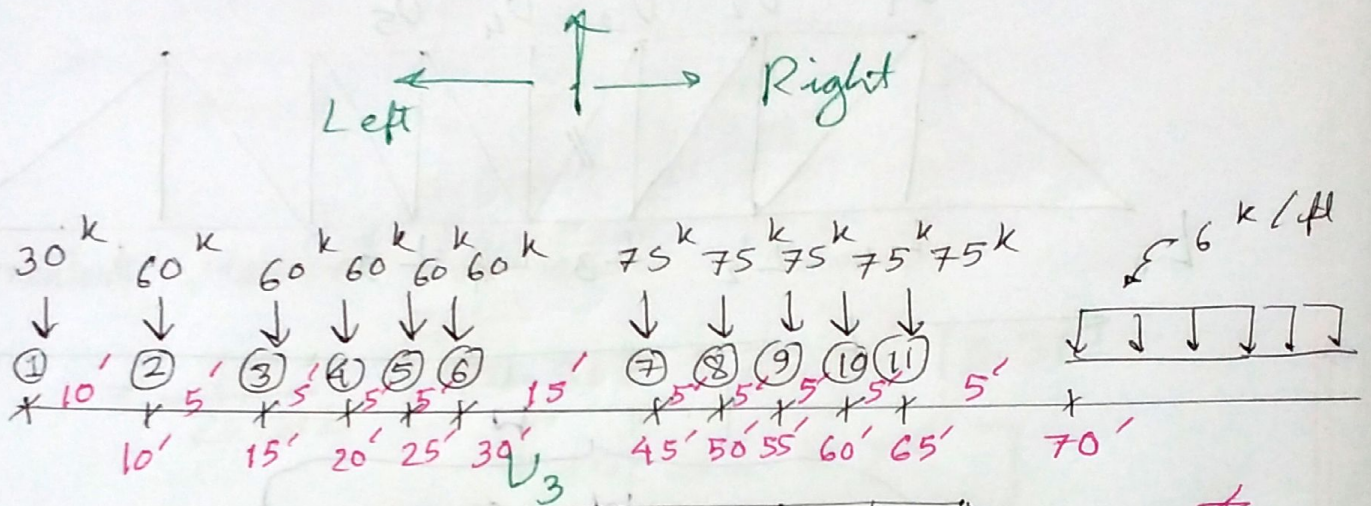 Left Right
30k 60k 60k 60k 60k 60k 75k 75k 75k 75k 75k 6 k/ft
1 2 3 4 5 6 7 8 9 10 11
10' 5' 5' 5' 5' 15' 5' 5' 5' 5' 5'
10' 15' 20' 25' 30' 45' 50' 55' 60' 65' 70'
U3